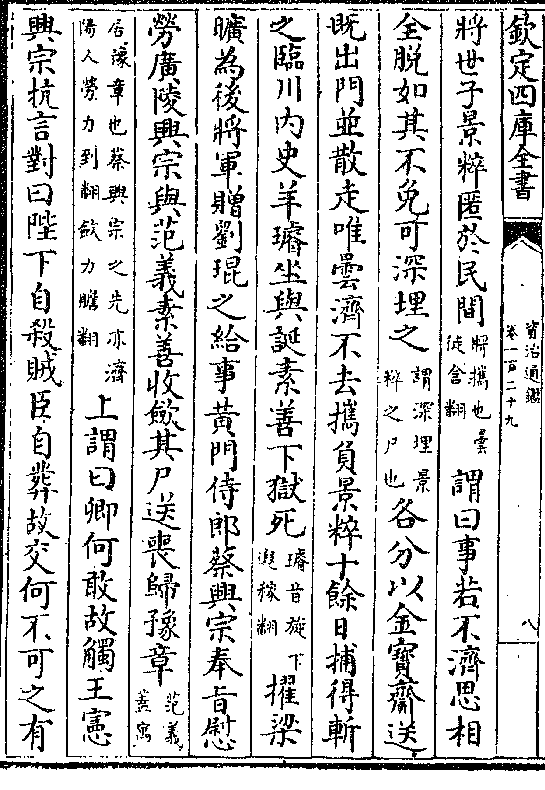 欽定四庫全書
資治通鑑
卷一百二十九
八
將世子景粹匿於民間將攜也曇徒含翻謂曰事若不濟思相
全脱如其不免可深埋之謂深埋景粹之尸也各分以金寶齎送
既出門並散走唯曇濟不去攜負景粹十餘日捕得斬
之臨川内史羊璿坐與誕素善下獄死璿音旋下遐稼翻擢梁
曠為後將軍贈劉琨之給事黃門侍郎蔡興宗奉旨慰
勞廣陵興宗與范義素善收斂其尸送喪歸豫章范義蓋寓
居豫章也蔡興宗之先亦濟陽人勞力到翻斂力膽翻上謂曰卿何敢故觸王憲
興宗抗言對曰陛下自殺賊臣自葬故交何不可之有